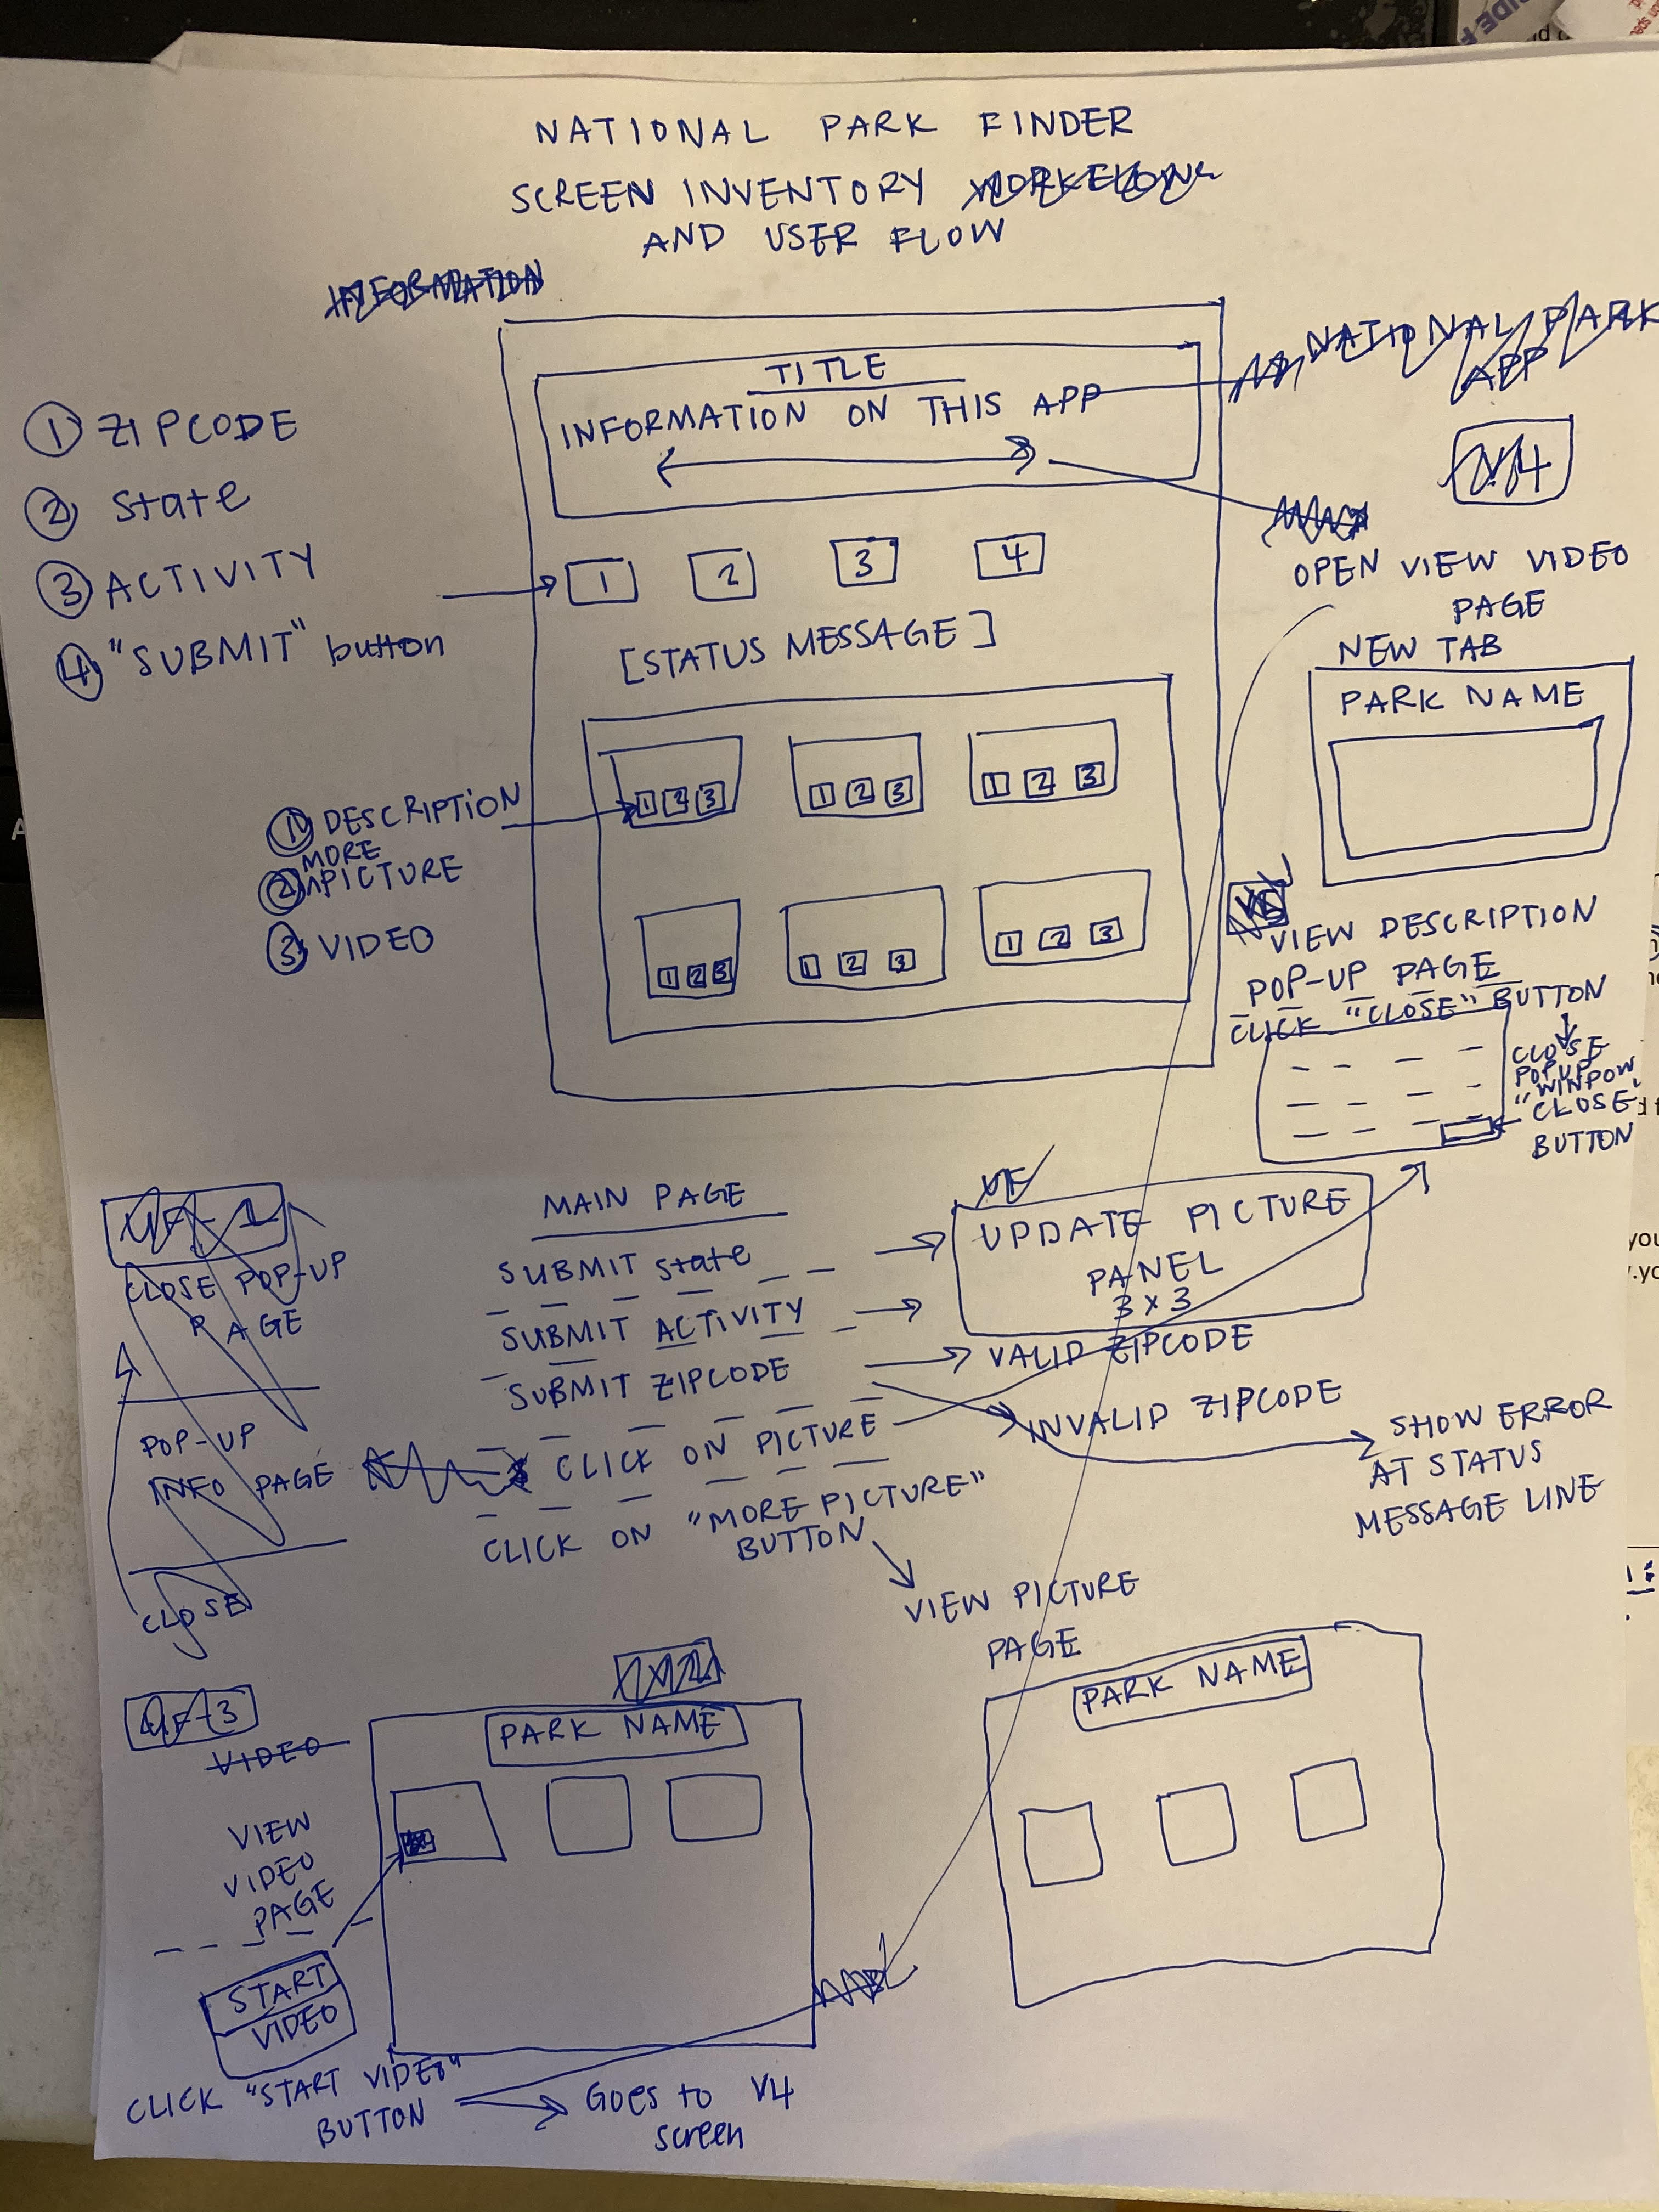 NATIONAL PARK FINDER
SCREEN INVENTORY
AND USER FLOW
INFORMATION
TITLE
INFORMATION ON THIS APP
NATIONAL PARK
APP
V4
① ZIPCODE
② State
③ ACTIVITY
④ "SUBMIT" button
1 2 3 4
[STATUS MESSAGE]
OPEN VIEW VIDEO
PAGE
NEW TAB
PARK NAME
1 2 3
1 2 3
1 2 3
① DESCRIPTION
MORE
② PICTURE
③ VIDEO
1 2 3
1 2 3
1 2 3
VIEW DESCRIPTION
POP-UP PAGE
CLICK "CLOSE" BUTTON
CLOSE
POPUP
WINDOW
"CLOSE"
BUTTON
UF-1
CLOSE POP-UP
PAGE
POP-UP
INFO PAGE
CLOSE
MAIN PAGE
SUBMIT State
SUBMIT ACTIVITY
SUBMIT ZIPCODE
CLICK ON PICTURE
CLICK ON "MORE PICTURE"
BUTTON
UPDATE PICTURE
PANEL
3 x 3
VALID ZIPCODE
INVALID ZIPCODE
SHOW ERROR
AT STATUS
MESSAGE LINE
VIEW PICTURE
PAGE
PARK NAME
UF-3
VIDEO
PARK NAME
VIEW
VIDEO
PAGE
START
VIDEO
CLICK "START VIDEO"
BUTTON
Goes to V4
screen